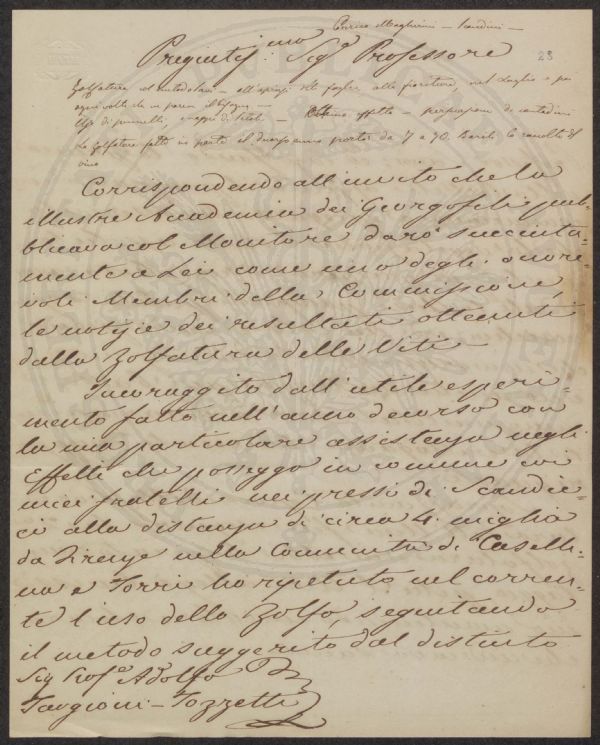 Enrico Magherini – Scandicci –
23
Pregiatiss.mo Sig.r Professore
Zolfatura col – all'aprirsi delle foglie, alla fioritura, nel Luglio e poi
ogni volta che ne pareva il bisogno –
Uso di pennelli, – Ottimo effetto – Persuasione di contadini
La Zolfatura fatta in parte il decorso anno portò da 7 a 70 Barili la raccolta del
vino
Corrispondendo all'invito che la
illustre Accademia dei Georgofili pub-
blicava col Monitore darò succinta-
mente a Lei come uno degli onore-
voli Membri della Commissione,
le notizie dei resultati ottenuti
dalla Zolfatura delle Viti –
Incoraggito dall'utile esperi-
mento fatto nell'anno decorso con
la mia particolare assistenza negli
Effetti che posseggo in comune coi
miei fratelli nei pressi di Scandic-
ci alla distanza di circa 4 miglia
da Firenze nella Comunità di Caselli-
na e Torri ho ripetuto nel corren-
te l'uso dello Zolfo, seguitando
il metodo suggerito dal distinto
Sig Prof.e Adolfo
Targioni-Tozzetti